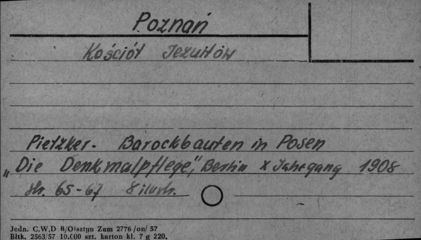 Poznań
Kościół Jezuitów
Pietzker - Barockbauten in Posen
„Die Denkmalpflege", Berlin X Jahrgang 1908
str. 65-67 8 ilustr.
Jedn. C.W.D B/Olsztyn Zam 2776/on/57
Bltk. 2563/57 10.000 szt. karton kl. 7 g 220.